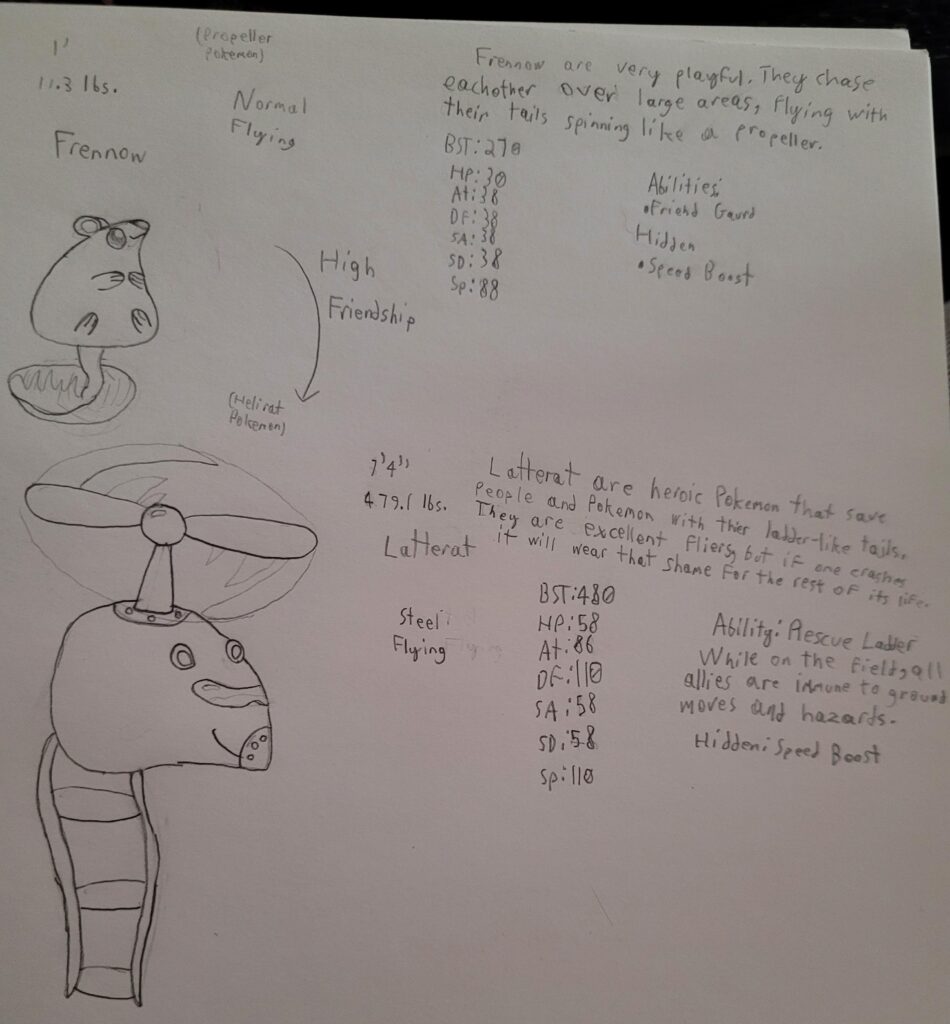 1'
11.3 lbs.
(Propeller
Pokemon)
Normal
Flying
Frennow
Frennow are very playful. They chase
eachother over large areas, flying with
their tails spinning like a propeller.
BST: 270
HP: 30
At: 38
DF: 38
SA: 38
SD: 38
Sp: 88
Abilities:
•Friend Gaurd
Hidden
•Speed Boost
High
Friendship
(Helirat
Pokemon)
7'4"
479.1 lbs.
Latterat
Steel
Flying
Latterat are heroic Pokemon that save
People and Pokemon with thier ladder-like tails.
They are excellent fliers, but if one crashes
it will wear that shame for the rest of its life.
BST: 480
HP: 58
At: 86
DF: 110
SA: 58
SD: 58
Sp: 110
Ability: Rescue Ladder
While on the field, all
allies are immune to ground
moves and hazards.
Hidden: Speed Boost